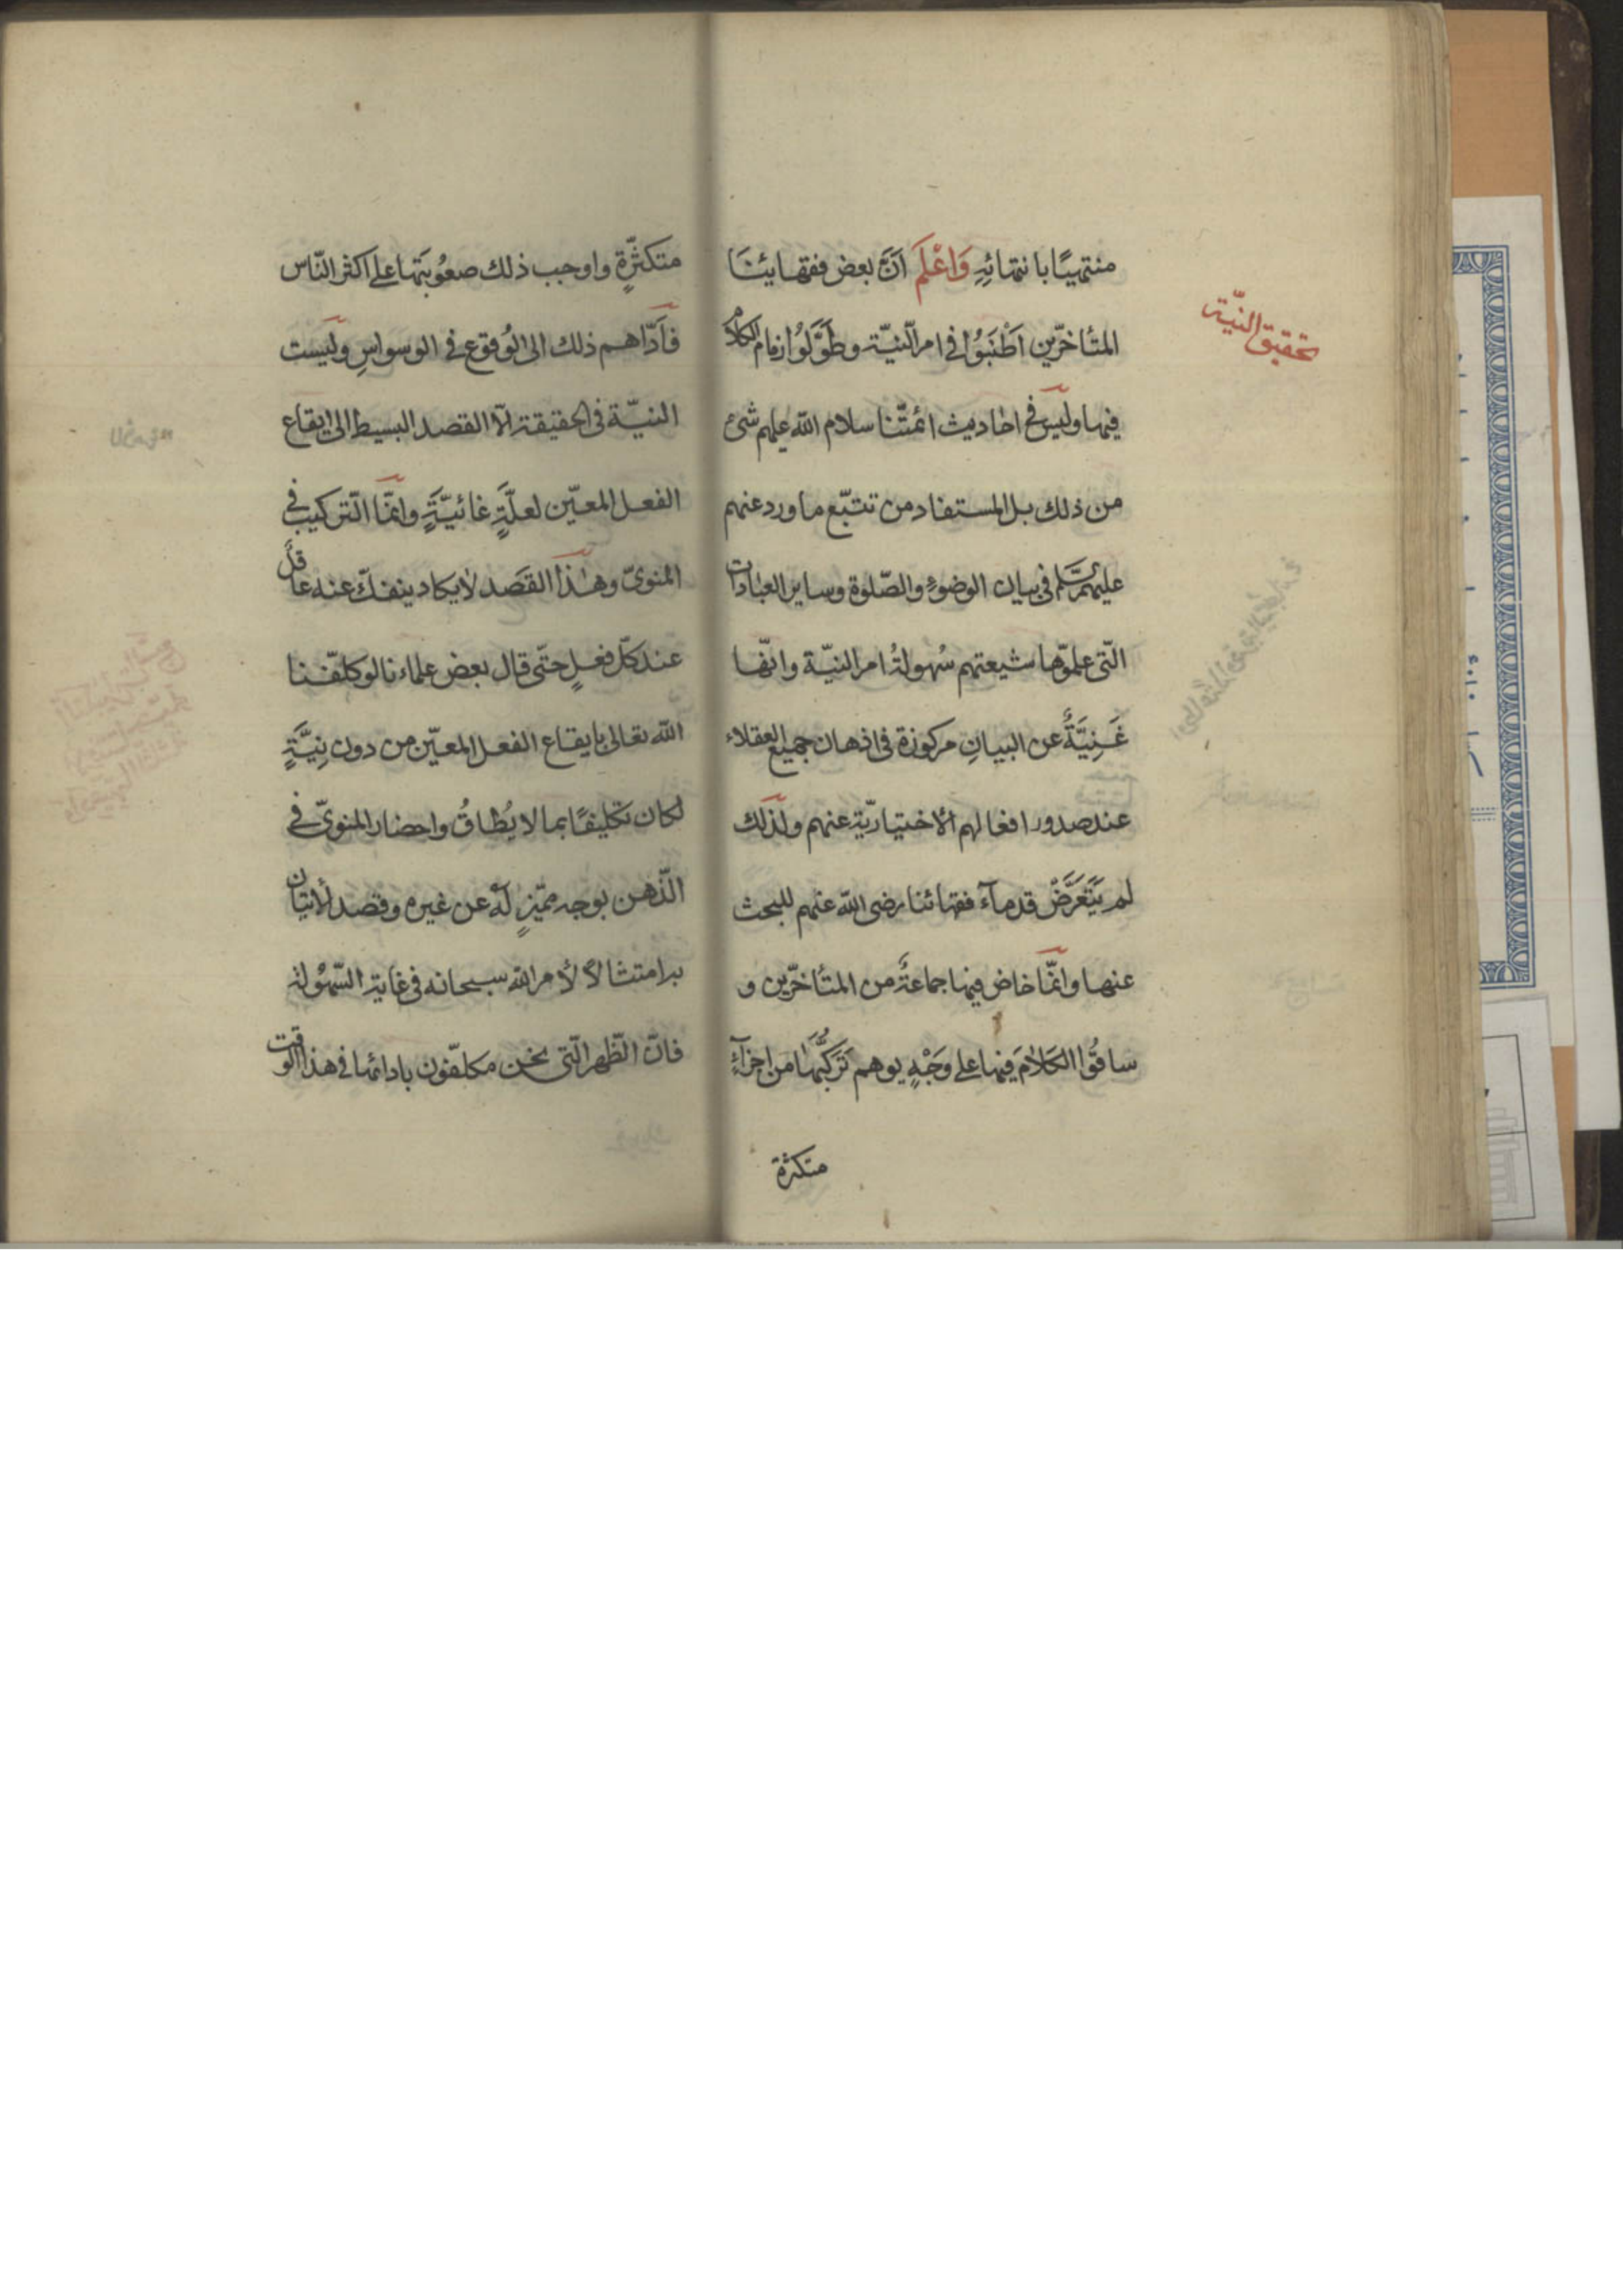 منتهيًا بانتهائِهِ وَاعْلَم اَنَّ بعض فقهائِنَا
تحقيق النيّة
المتأخرّين اَطْنَبُوا فى امر النيّة وطَوَّلُوا زمام الكلام
فيها وليس فى احاديث ائمتّنا سلام الله عليهم شئ
من ذلك بل المستفاد من تتبّع ما ورد عنهم
عليهم السّلم فى بيان الوضوءِ والصّلوة وساير العبادات
التّى علموّها شيعتهم سُهولةُ امر النيّة وانّها
غَنِيَّةٌ عن البيانِ مركوزة فى اذهان جميع العقلاء
عند صدور افعالهم الأختياريّة عنهم ولذلك
لم يَتَعَرَّضْ قدمآء فقهائنا رضى الله عنهم للبحث
عنها وانّما خاض فيها جماعةٌ من المتأخرّين و
ساقُوا الكَلامَ فيها على وَجْهٍ يوهم تَرَكُّبَها من اجزآءٍ
متكثرة
متكثّرةٍ واوجب ذلك صعُوبَتها على اكثر النّاس
فاَدّاهم ذلك الى الوُقوع فى الوسواسِ وليَست
النيّة فى الحقيقة الاّ القصد البسيط الى ايقاع
الفعل المعيّن لعلَّةٍ غائيَّةٍ وانّما التّركيب فى
المنوىّ وهذا القَصد لايكاد ينفكّ عنه عاقل
عند كلّ فعلٍ حتّى قال بعض علماءنا لو كلّفنا
الله تعالى بايقاع الفعل المعيّن من دون نِيَّةٍ
لكان تكليفًا بما لا يُطاقُ واحضار المنوىّ فى
الذّهن بوجه مميّزٍ له عن غيره وقصد الأتيان
به امتثالاً لأمر الله سبحانه فى غاية السّهُولة
فانّ الظّهر الّتى نحن مكلّفون بادائها فى هذا الوقت